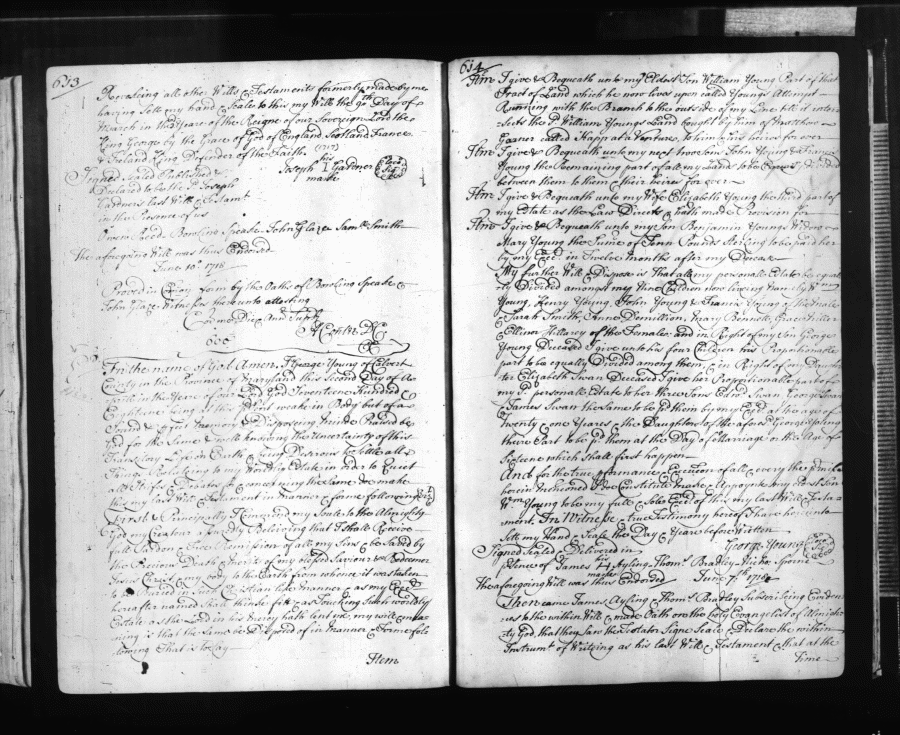 613
Revoaking all other Wills & Testaments formerly made by me
having Sett my hand & Seale to this my Will the 9th Day of
March in the Yeare of the Reigne of our Sovereign Lord the
King George by the Grace of God of England Scotland France
& Ireland King Defender of the Faith (1717)
Signed Sealed Published &
Declared to be the sd Joseph
Gardners last Will & Testamt
in the Presence of us
his
Joseph I Gardener
marke
Speake John Glaze Samll Smith
The aforegoing Will was thus Endorsed
June 10th 1718
Proved in Comon form by the Oaths of Bowling Speake &
John Glaze Witnesses thereunto attesting
In the name of God Amen. I George Young of Calvert
County in the Province of Maryland this Second Day of
in the Yeare of our Lord God Seventeene Hundred &
Eighteene being at this weake in Body but of a
Sound & memory & Disposeing minde Praised be
God for the Same & well knowing the Uncertainty of this
Transitory Life on Earth & being Desirous to Settle all
things Relateing to my Worldly Estate in order to
all Strifes & Debates concerning the Same do make
this my last Will & Testament in Manner & forme following (viz)
First & Principally I Comend my Soule to the Allmighty
God my Creator assuredly Believing that I shall Receive
full Pardon & free Remission of all my Sins & be Saved by
the Precious Death & merits of my blessed Saviour & Redeemer
Jesus Christ & my body to the Earth from whence it was taken
to be Buried in Such Christian like manner as my Exer
hereafter named shall thinke fitt & as Touching Such worldly
Estate as the Lord in his mercy hath lent me my will & mea
ning is that the Same be Disposed of in Manner & Forme foll
owing That is to say
Item
614
Item I give & Bequeath unto my Eldest Son William Young Part of that
Tract of Land which he now lives upon called Youngs Attempt
Running with the Branch to the outside of my Line till it inter
Sects the sd William Youngs Land bought by him of Matthew
called Hap at a Venture to him & his heires for ever
Item I give & Bequeath unto my next two sons John Young & Francis
Young the Remaining part of all my Lands to be Equally Divided
between them to them & their heires for ever
Item I give & Bequeath unto my Wife Elizabeth Young the third part of
my Estate as the Law Directs & hath made Provision for
Item I give & Bequeath unto my Son Benjamin Youngs Widdow
Mary Young the Sume of Tenn Pounds Sterling to be paid her
by my Exer in Twelve Months after my Decease
My further Will & Dispose is That all my personall Estate be equal
ly Divided amongst my Nine Children now liveing namely Wm
Young, Henry Young, John Young & Francis Young of the Males
& Sarah Smith, Anne Demillion, Mary Bennett, Grace
& Ellinor Hillary of the Females and in Right of my Son George
Young Deceased I give unto his four Children his Proportionable
part to be equally Divided among them & in Right of my Daugh
ter Elizabeth Swan Deceased I give her Proportionall part of
my sd personall Estate to her three Sons Edwd Swan George Swan
& James Swan the Same to be pd them by my Exer at the age of
Twenty one Yeares & the Daughters of the aforesd George Young
there Part to be pd them at the Day of Marriage or the Age of
Sixteene which Shall first happen
And for the true performance & Execution of all & every the
herein Mentioned I do Constitute make & Appoynt my Eldest Son
Wm Young to be my full & Sole Exer of this my last Will & Testa
ment. In Witness & true Testimony hereof I have hereunto
Sett my Hand & Seale the Day & Yeare before Written
Signed Sealed & Delivered in
George Young
Presence of James Ayling Thoms Bradley
marke
The aforegoing Will was thus Endorsed June 7th 1718
Then came James Ayling & Thoms Bradley Subscribing Evidences
to the within Will & made Oath on the holy Evangelist of Almigh
ty God, that they Saw the Testator Signe Seale & Declare the within
Instrumt of Writeing as his last Will & Testament & that at the
time